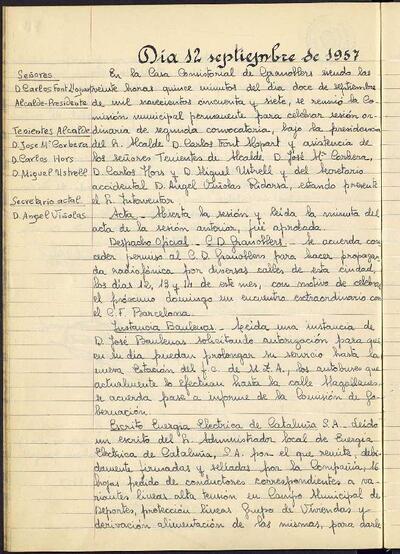 Día 12 septiembre de 1957
Señores
D. Carlos Font Llopart
Alcalde-Presidente
Tenientes Alcalde
D. Jose Mª Corbera
D. Carlos Hors
D. Miguel Ustrell
Secretario actal
D. Angel Viñolas
En la Casa Consistorial de Granollers siendo las
veinte horas quince minutos del día doce de septiembre
de mil novecientos cincuenta y siete, se reunió la Co-
misión municipal permanente para celebrar sesión or-
dinaria de segunda convocatoria, bajo la presidencia
del Sr. Alcalde D. Carlos Font Llopart y asistencia de
los señores Tenientes de Alcalde D. José Mª Corbera,
D. Carlos Hors y D. Miguel Ustrell y del Secretario
accidental D. Angel Viñolas Ridorsa, estando presente
el Sr. Interventor.
Acta.- Abierta la sesión y leída la minuta del
acta de la sesión anterior, fué aprobada.
Despacho Oficial.- C.D. Granollers.- Se acuerda con-
ceder permiso al C.D. Granollers para hacer propagan-
da radiofónica por diversas calles de esta ciudad,
los días 12, 13 y 14 de este mes, con motivo de celebrar
el próximo domingo un encuentro extraordinario con
el C.F. Barcelona.
Instancia Baulenas.- Leída una instancia de
D. José Baulenas solicitando autorización para que
en su día puedan prolongar su servicio hasta la
nueva Estación del f.c. de M.Z.A., los autobuses que
actualmente lo efectúan hasta la calle Magallanes,
se acuerda pase a informe de la Comisión de Go-
bernación.
Escrito Energia Electrica de Cataluña S.A.- Leído
un escrito del Sr. Administrador local de Energia
Electrica de Cataluña, S.A. por el que remite, debi-
damente firmadas y selladas por la Compañia, las
hojas pedido de conductores correspondientes a va-
riantes lineas alta tensión en Campo Municipal de
Deportes, protección lineas Grupo de Viviendas y
derivación alimentación de las mismas, para darle